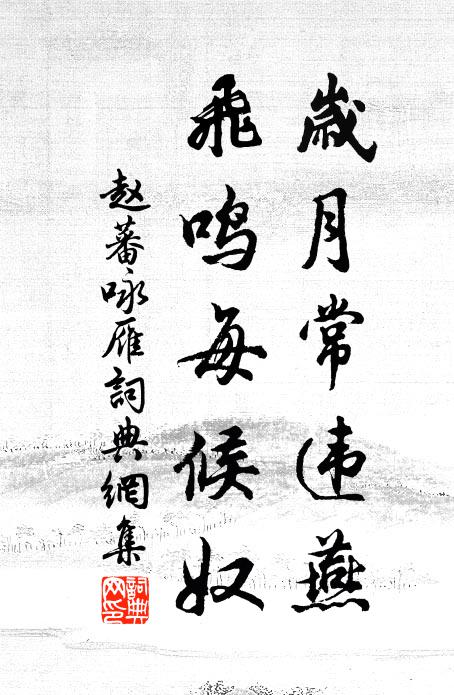 歲月常违燕
飛鳴每候奴
赵蕃咏雁詞典網集
詞典網印